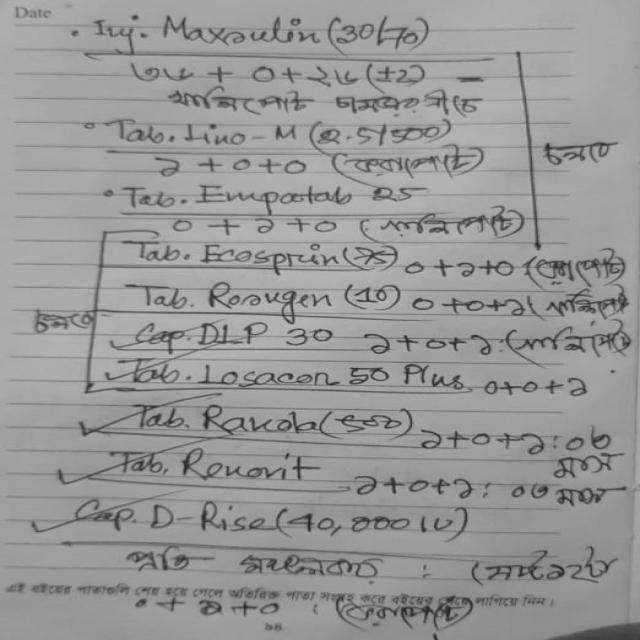 Date
• Inj. Maxsulin (30/70)
৩৮ + ০ + ২৮ (±2)
খালিপেটে চামড়ার নীচে
• Tab. Lino-M (2.5/500)
১ + ০ + ০ (ভরাপেটে) চলবে
• Tab. Empatab 25
০ + ১ + ০ (খালিপেটে)
Tab. Ecosprin (75) ০ + ১ + ০ (ভরাপেটে)
Tab. Rosugen (10) ০ + ০ + ১ (খালিপেটে)
চলবে Cap. DLP 30 ১ + ০ + ১ : (খালিপেটে)
Tab. Losacon 50 Plus ০ + ০ + ১
Tab. Ranola (500) ১ + ০ + ১ : ০৩ মাস
Tab. Renovit ১ + ০ + ১ : ০৩ মাস
Cap. D-Rise (40,000 IU)
প্রতি :
এই বইয়ের পাতাগুলি শেষ হয়ে গেলে অতিরিক্ত পাতা সংগ্রহ করে বইয়ের সাথে লাগিয়ে নিন।
০ + ১ + ০ : (ভরাপেটে)